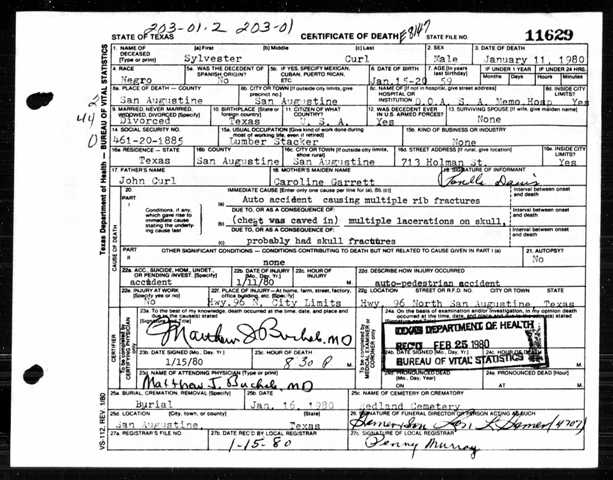 203-01.2 203-01
STATE OF TEXAS CERTIFICATE OF DEATH STATE FILE NO. 11629
1. NAME OF DECEASED (Type or print) (a) First (b) Middle (c) Last 2. SEX 3. DATE OF DEATH
Sylvester Curl Male January 11, 1980
4. RACE 5a. WAS THE DECEDENT OF SPANISH ORIGIN? 5b. IF YES, SPECIFY MEXICAN, CUBAN, PUERTO RICAN, ETC. 6. DATE OF BIRTH 7. AGE (In years last birthday) IF UNDER 1 YEAR IF UNDER 24 HRS.
Months Days Hours Minutes
Negro No Jan. 15-20 59
8a. PLACE OF DEATH — COUNTY 8b. CITY OR TOWN (If outside city limits, give precinct no.) 8c. NAME OF (If not in hospital, give street address) HOSPITAL OR INSTITUTION 8d. INSIDE CITY LIMITS
San Augustine San Augustine D.O.A. S. A. Memo. Hosp. Yes
9. MARRIED, NEVER MARRIED, WIDOWED, DIVORCED (Specify) 10. BIRTHPLACE (State or foreign country) 11. CITIZEN OF WHAT COUNTRY? 12. WAS DECEDENT EVER IN U.S. ARMED FORCES? 13. SURVIVING SPOUSE (If wife, give maiden name)
Divorced Texas U. S. A. Yes None
14. SOCIAL SECURITY NO. 15a. USUAL OCCUPATION (Give kind of work done during most of working life, even if retired) 15b. KIND OF BUSINESS OR INDUSTRY
461-20-1885 Lumber Stacker None
16a. RESIDENCE — STATE 16b. COUNTY 16c. CITY OR TOWN (If outside city limits, show rural) 16d. STREET ADDRESS (If rural, give location) 16e. INSIDE CITY LIMITS
Texas San Augustine San Augustine 713 Holman St. Yes
17. FATHER'S NAME 18. MOTHER'S MAIDEN NAME 19. SIGNATURE OF INFORMANT
John Curl Caroline Garrett Davis
20. IMMEDIATE CAUSE (Enter only one cause per line for (a), (b), (c)) Interval between onset and death
PART I (a) Auto accident causing multiple rib fractures
Conditions, if any, which gave rise to immediate cause stating the underlying cause last
DUE TO, OR AS A CONSEQUENCE OF: Interval between onset and death
(b) (chest was caved in) multiple lacerations on skull,
DUE TO, OR AS A CONSEQUENCE OF: Interval between onset and death
(c) probably had skull fractures
PART II OTHER SIGNIFICANT CONDITIONS — CONDITIONS CONTRIBUTING TO DEATH BUT NOT RELATED TO CAUSE GIVEN IN PART I (a) 21. AUTOPSY?
none No
22a. ACC. SUICIDE, HOM., UNDET., OR PENDING INVEST. (Specify) 22b. DATE OF INJURY (Mo., Day, Yr.) 22c. HOUR OF INJURY 22d. DESCRIBE HOW INJURY OCCURRED
accident 1/11/80 M auto-pedestrian accident
22e. INJURY AT WORK (Specify yes or no) 22f. PLACE OF INJURY—At home, farm, street, factory, office building, etc. (Specify) 22g. LOCATION STREET OR R.F.D. NO. CITY OR TOWN STATE
No Hwy. 96 N. City Limits Hwy. 96 North San Augustine, Texas
23a. To the best of my knowledge, death occurred at the time, date, and place and due to the cause(s) stated (Signature)
Matthew J. Buchele MD
24a. On the basis of examination and/or investigation, in my opinion death occurred at the time, date and place and due to the cause(s) stated
TEXAS DEPARTMENT OF HEALTH
REC'D FEB 25 1980
BUREAU OF VITAL STATISTICS
23b. DATE SIGNED (Mo., Day, Yr.) 23c. HOUR OF DEATH 24b. DATE SIGNED
1/15/80 8 30 P M
23d. NAME OF ATTENDING PHYSICIAN (Type or print) 24d. PRONOUNCED DEAD (Mo., Day, Year) 24e. PRONOUNCED DEAD (Hour)
Matthew J. Buchele, MD ON AT M
25a. BURIAL, CREMATION, REMOVAL (Specify) 25b. DATE 25c. NAME OF CEMETERY OR CREMATORY
Burial Jan. 16, 1980 Cemetery
25d. LOCATION (City, town, or county) (State) 26. SIGNATURE OF FUNERAL DIRECTOR OR PERSON ACTING AS SUCH
San Augustine, Texas (4707)
27a. REGISTRAR'S FILE NO. 27b. DATE REC'D BY LOCAL REGISTRAR 27c. SIGNATURE OF LOCAL REGISTRAR
1-15-80 Penny Murray
Texas Department of Health — BUREAU OF VITAL STATISTICS
CAUSE OF DEATH
CERTIFIER
To be completed by CERTIFYING PHYSICIAN
VS-112, REV. 1/80